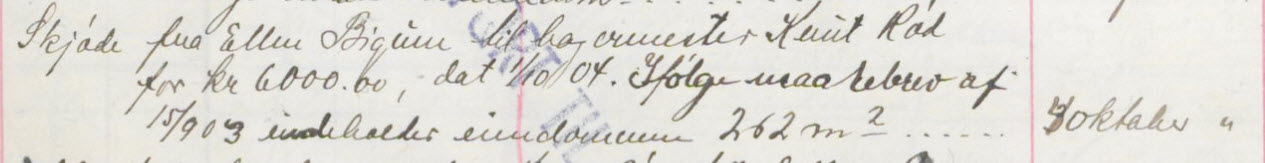 Skjøde fra Ellen Bigum til bagermester Knut Rød
for kr 6000.00, dat 1/10 04. Ifølge maalebrev af
15/9 03 indeholder eiendommen 262 m² ...... 4 oktober "